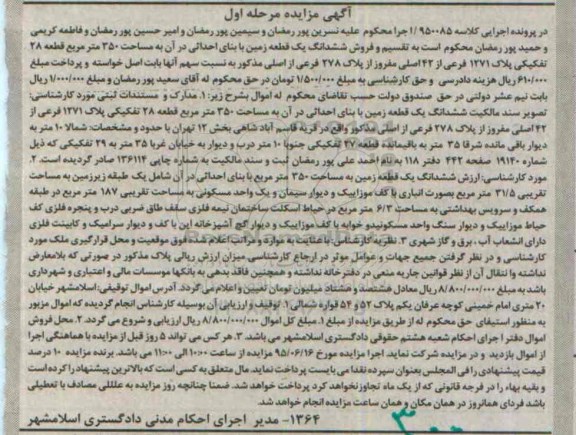 آگهی مزایده مرحله اول
در پرونده اجرایی کلاسه ۹۵۰۰۸۵ /ا جرا محکوم علیه نسرین پور رمضان و سیمین پور رمضان و امیر حسین پور رمضان و فاطمه کریمی
و حمید پور رمضان محکوم است به تقسیم و فروش ششدانگ یک قطعه زمین با بنای احداثی در آن به مساحت ۳۵۰ متر مربع قطعه ۲۸
تفکیکی پلاک ۱۲۷۱ فرعی از ۴۲ اصلی مفروز از پلاک ۲۷۸ فرعی از اصلی مذکور به نسبت سهم آنها بابت اصل خواسته و پرداخت مبلغ
۶۱۰/۰۰۰ ریال هزینه دادرسی و حق کارشناسی به مبلغ ۱/۵۰۰/۰۰۰ تومان در حق محکوم له آقای سعید پور رمضان و مبلغ ۱/۰۰۰/۰۰۰ ریال
بابت نیم عشر دولتی در حق صندوق دولت حسب تقاضای محکوم له اموال بشرح زیر: ۱. مدارک و مستندات ثبتی مورد کارشناسی:
تصویر سند مالکیت ششدانگ یک قطعه زمین با بنای احداثی در آن به مساحت ۳۵۰ متر مربع قطعه ۲۸ تفکیکی پلاک ۱۲۷۱ فرعی از
۴۲ اصلی مفروز از پلاک ۲۷۸ فرعی از اصلی مذکور واقع در قریه قاسم آباد شاهی بخش ۱۲ تهران با حدود و مشخصات: شمالا ۱۰ متر به
دیوار باقی مانده شرقا ۳۵ متر به باقیمانده قطعه ۲۷ تفکیکی جنوبا ۱۰ متر درب و دیوار به خیابان غربا ۳۵ متر به ۲۹ تفکیکی که ذیل
شماره ۱۹۱۴۰ صفحه ۴۴۲ دفتر ۱۱۸ به نام احمد علی پور رمضان ثبت و سند مالکیت به شماره چاپی ۱۳۶۱۱۴ صادر گردیده است. ۲.
مورد کارشناسی: ارزش ششدانگ یک قطعه زمین به مساحت ۳۵۰ متر مربع با بنای احداثی در آن شامل یک طبقه زیرزمین به مساحت
تقریبی ۳۱/۵ متر مربع بصورت انباری با کف موزاییک و دیوار سیمان و یک واحد مسکونی به مساحت تقریبی ۱۸۷ متر مربع در طبقه
همکف و سرویس بهداشتی به مساحت ۶/۳ متر مربع در حیاط اسکلت ساختمان نیمه فلزی سقف طاق ضربی درب و پنجره فلزی کف
حیاط موزاییک و دیوار سنگ واحد مسکونیدو خوابه با کف موزاییک و دیوار گچ آشپزخانه این با کف و دیوار سرامیک و کابینت فلزی
دارای انشعاب آب ، برق و گاز شهری ۳. نظریه کارشناس: با عنایت به موارد و مراتب اعلام شده فوق موقعیت و محل قرارگیری ملک مورد
کارشناسی و در نظر گرفتن جمیع جهات و عوامل موثر در ارجاع کارشناسی میزان ارزش ریالی پلاک مذکور در صورتی که بلامعارض
نداشته وا انتقال آن از نظر قوانین جاریه منعی در دفترخانه نداشته و همچنین فاقد بدهی به بانکها موسسات مالی و اعتباری و شهرداری
باشد به مبلغ ۸/۸۰۰/۰۰۰/۰۰۰ ریال معادل هشتصد و هشتاد میلیون تومان تعیین و اعلام می گردد. آدرس اموال توقیفی: اسلامشهر خیابان
۲۰ متری امام خمینی کوچه عرفان یکم پلاک ۵۲ و ۵۴ قواره شمالی ۱. توقیف و ارزیابی آن بوسیله کارشناس انجام گردیده که اموال مزبور
به منظور استیفای حق محکوم له از طریق مزایده از مبلغ ۱. مبلغ کل اموال ۸/۸۰۰/۰۰۰/۰۰۰ ریال ارزیابی و شروع می گردد. ۲. محل فروش
اموال دفتر ا جرای احکام شعبه هشتم حقوقی دادگستری اسلامشهر می باشد. ۳. هر کس می تواند ۵ روز قبل از مزایده با هماهنگی اجرا
از اموال بازدید و در مزایده شرکت نماید. اجرا مزایده مورخ ۹۵/۰۶/۱۶ مزایده از ساعت ۱۰:۰۰ الی ۱۱:۰۰ می باشد. برنده مزایده ۱۰ درصد
قیمت پیشنهادی را فی المجلس بعنوان سپرده نقدا می بایست پرداخت نماید. مال متعلق به کسی است که بالاترین پیشنهاد را کرده است
و بقیه بهاء را در فرجه قانونی که از یک ماه تجاوز نخواهد کرد پرداخت خواهد شد. ضمنا چنانچه روز مزایده به عللی مصادف با تعطیلی
باشد فردای همانروز در همان مکان و همان ساعت مزایده انجام خواهد شد.
۱۳۶۴- مدیر اجرای احکام مدنی دادگستری اسلامشهر